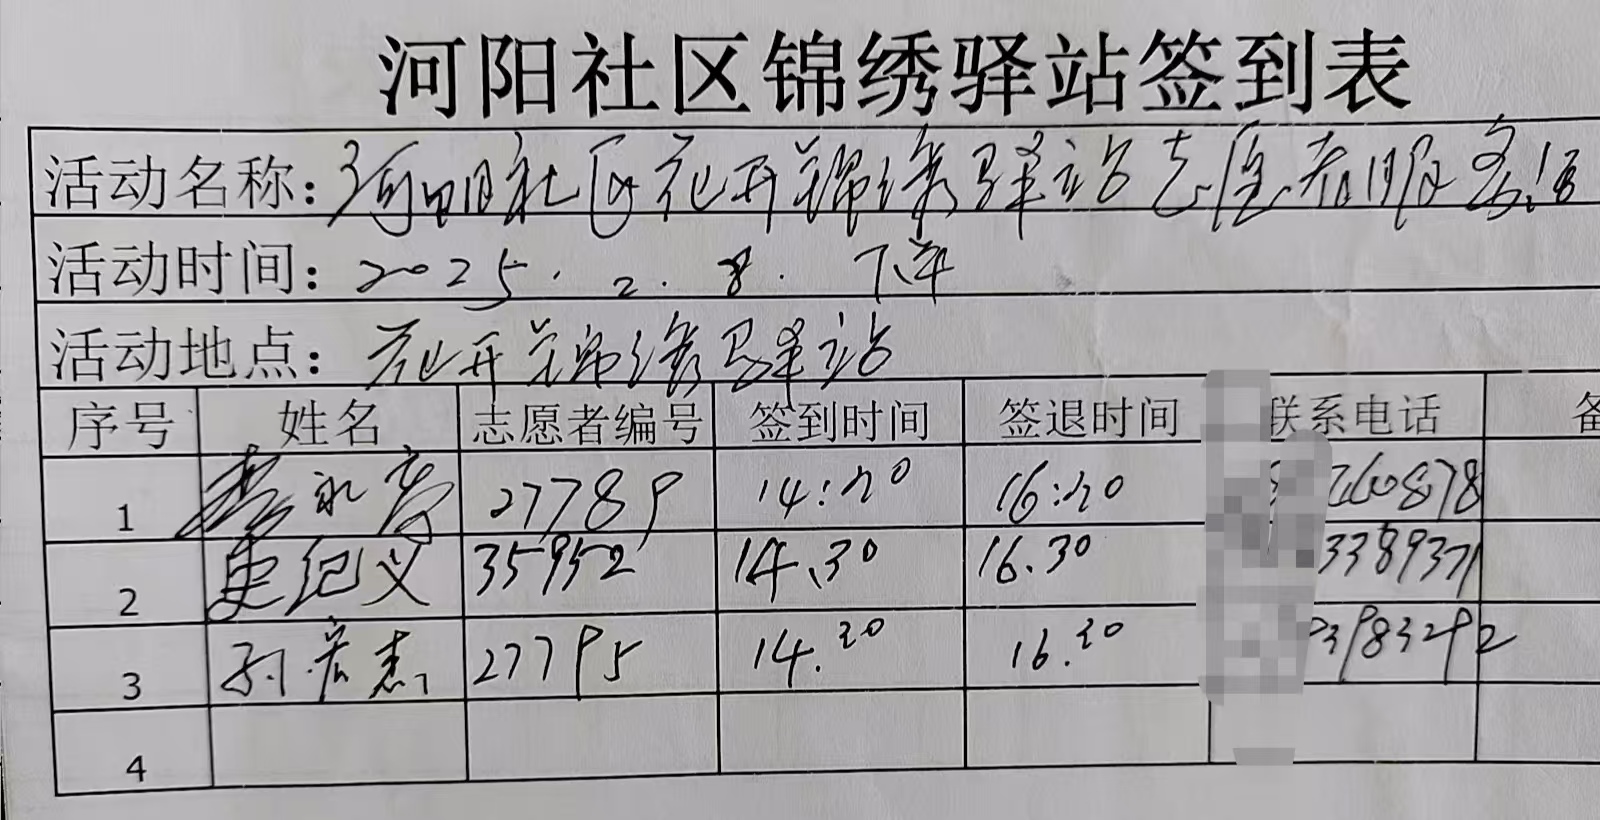 河阳社区锦绣驿站签到表
活动名称：河阳社区花开锦绣驿站志愿者服务活
活动时间：2025.2.8.下午
活动地点：花开锦绣驿站
序号 姓名 志愿者编号 签到时间 签退时间 联系电话 备
1 永 27789 14:20 16:20 7660878
2 史纪义 35952 14.30 16.30 3389371
3 孙宏杰 27795 14.20 16.20 93983292
4